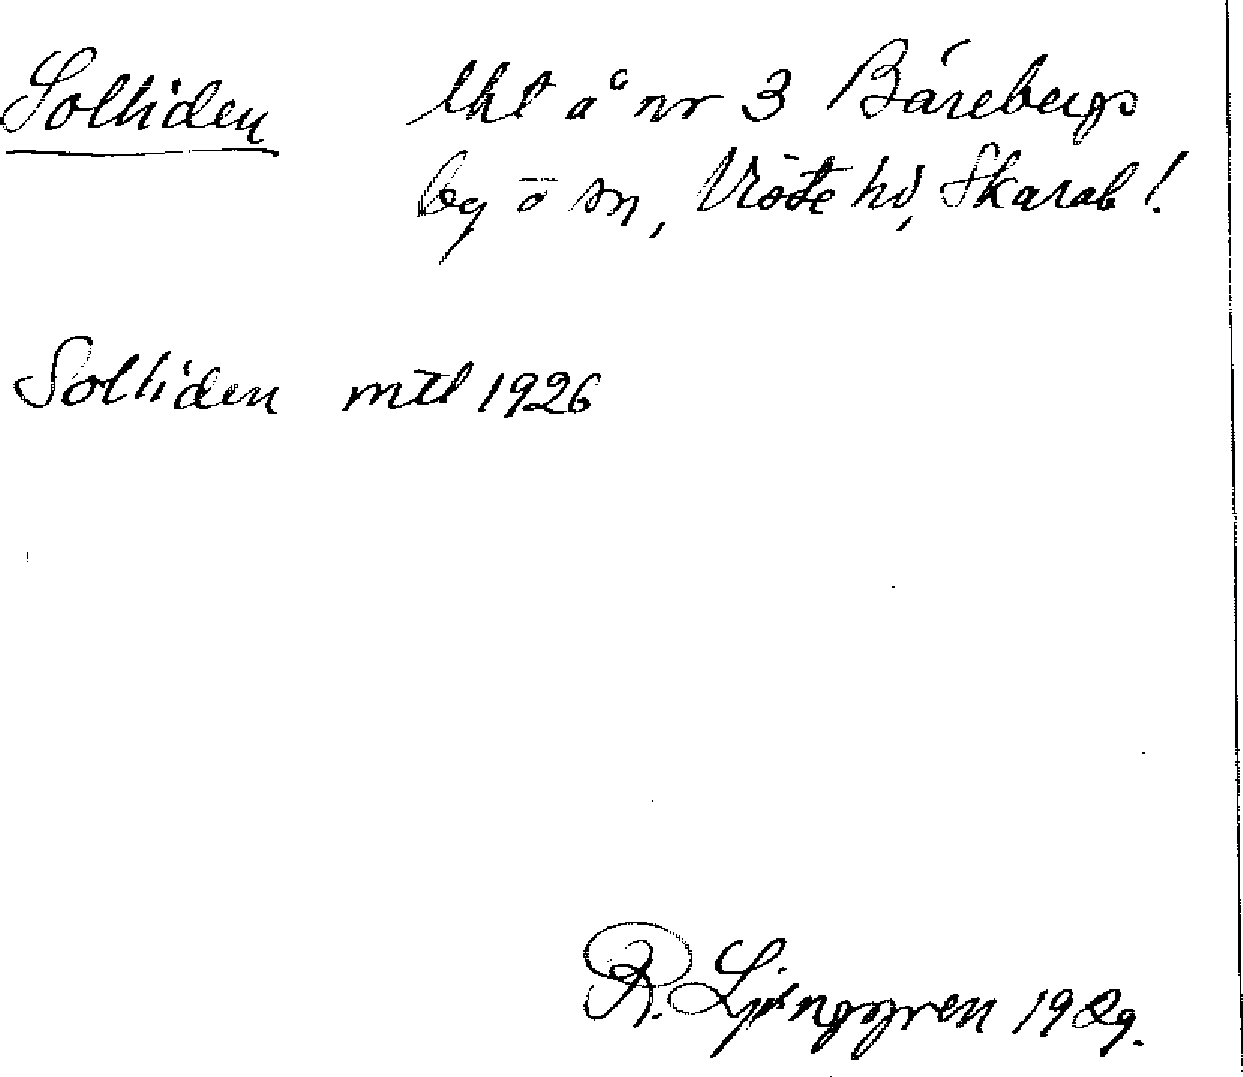 Solliden lht å nr 3 Bårebergs
by o sn, Viste hd, Skarab l.
Solliden mtl 1926
R. Ljunggren 1929.